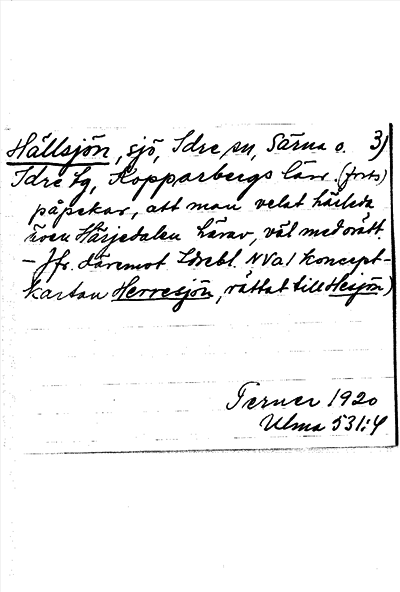 Hällsjön, sjö, Idre sn, Särna o. 3)
Idre tg, Kopparbergs län. (forts)
påpekar, att man velat härleda
även Härjedalen härav, väl med orätt.
– Jfr. däremot Idrebl. NVa. 1 koncept-
kartan Herresjön, rättat till Hesjön)
Terner 1920
Ulma 531:4